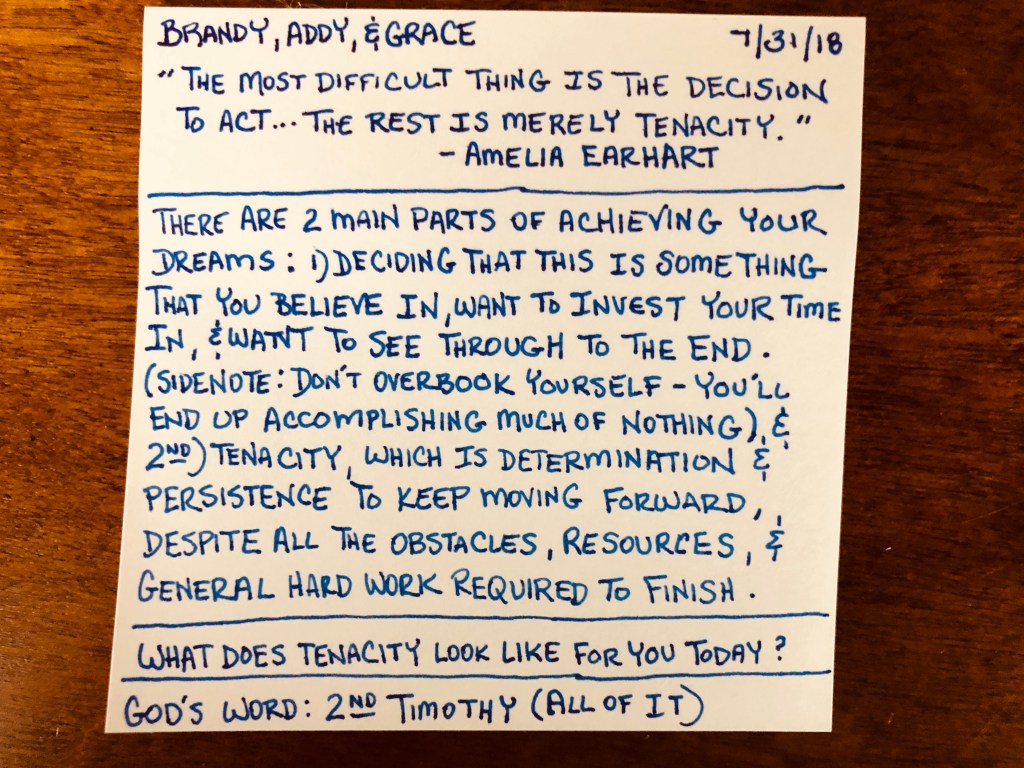 BRANDY, ADDY, & GRACE 7/31/18
"THE MOST DIFFICULT THING IS THE DECISION
TO ACT... THE REST IS MERELY TENACITY."
- AMELIA EARHART
THERE ARE 2 MAIN PARTS OF ACHIEVING YOUR
DREAMS: 1) DECIDING THAT THIS IS SOMETHING
THAT YOU BELIEVE IN, WANT TO INVEST YOUR TIME
IN, & WANT TO SEE THROUGH TO THE END.
(SIDENOTE: DON'T OVERBOOK YOURSELF - YOU'LL
END UP ACCOMPLISHING MUCH OF NOTHING), &
2ND) TENACITY, WHICH IS DETERMINATION &
PERSISTENCE TO KEEP MOVING FORWARD,
DESPITE ALL THE OBSTACLES, RESOURCES, &
GENERAL HARD WORK REQUIRED TO FINISH.
WHAT DOES TENACITY LOOK LIKE FOR YOU TODAY?
GOD'S WORD: 2ND TIMOTHY (ALL OF IT)